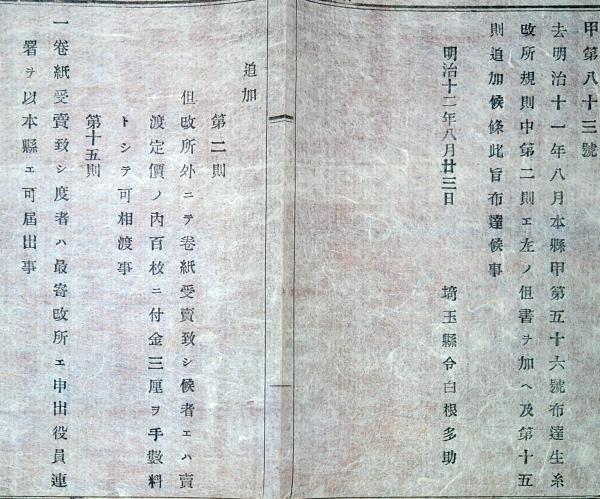 甲第八十三號
去明治十一年八月本縣甲第五十六號布達生糸
改所規則中第二則エ左ノ但書ヲ加ヘ及第十五
則追加候條此旨布達候事
明治十二年八月廿三日　埼玉縣令白根多助
追加
第二則
但改所外ニテ卷紙受賣致シ候者エハ賣
渡定價ノ內百枚ニ付金三厘ヲ手數料
トシテ可相渡事
第十五則
一卷紙受賣致シ度者ハ最寄改所エ申出役員連
署ヲ以本縣エ可屆出事